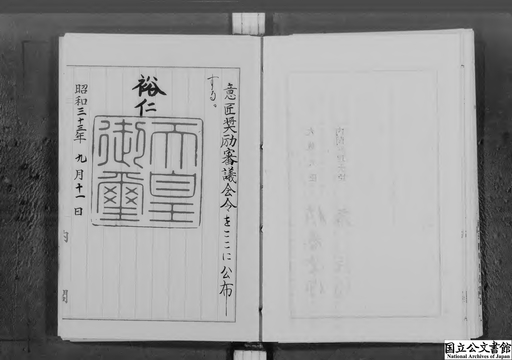 意匠奨励審議会令をここに公布
する。
裕仁
天皇
御璽
昭和三十三年九月十一日
国立公文書館
National Archives of Japan